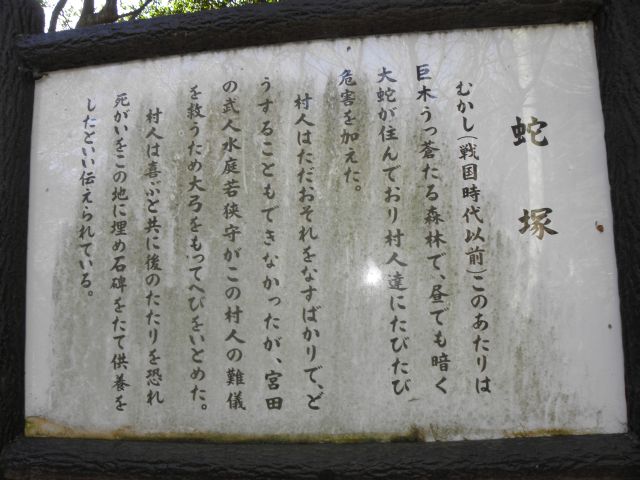 蛇塚
むかし(戦国時代以前)このあたりは
巨木うっ蒼たる森林で、昼でも暗く
大蛇が住んでおり村人達にたびたび
危害を加えた。
村人はただおそれをなすばかりで、ど
うすることもできなかったが、宮田
の武人水庭若狭守がこの村人の難儀
を救うため大弓をもってへびをいとめた。
村人は喜ぶと共に後のたたりを恐れ
死がいをこの地に埋め石碑をたて供養を
したといい伝えられている。